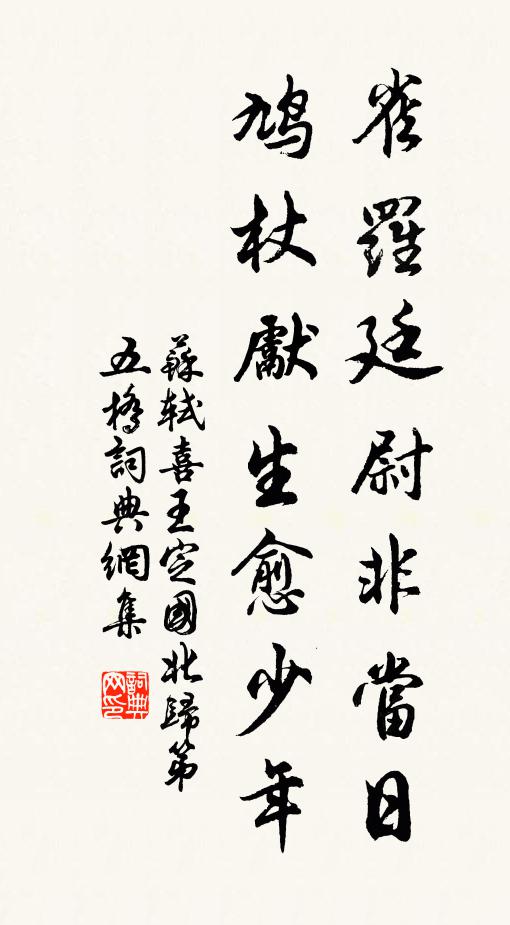 雀羅廷尉非當日
鳩杖獻生愈少年
蘇軾喜王定國北歸第
五橋詞典網集
詞典网印